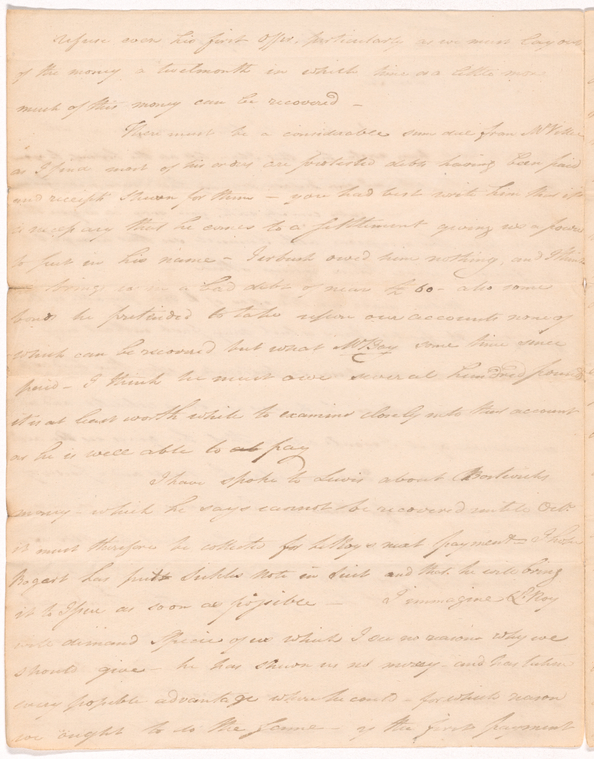 refuse even his first offer, particularly as we must lay out
of the money a twelvemonth in which time as a little more
much of this money can be recovered –
There must be a considerable sum due from Mr
as I find most of his ones are protested debts having been paid
and receipts shewn for them – you had best write him that it is
necessary that he comes to a settlement giving us a power
to put in his name – owed him nothing, and I think
in a bad debt of near £ 60 – also some
bonds he pretended to take upon our accounts none of
which can be recovered but what Mr Kay some time since
paid – I think he must owe several hundred pounds
it is at least worth while to examine closely into this account
as he is well able to pay
I have spoke to Lewis about
money – which he says cannot be recovered until Octr
it must therefore be collected for LeRoys next payment – I hope
Bogart has put note in suit and that he will bring
it to Issue as soon as possible – I immagine LeRoy
will demand Specie of us which I see no reason why we
should give – he has shewn us no mercy – and has taken
every possible advantage where he could – for which reason
we ought to do the same – if the first payment